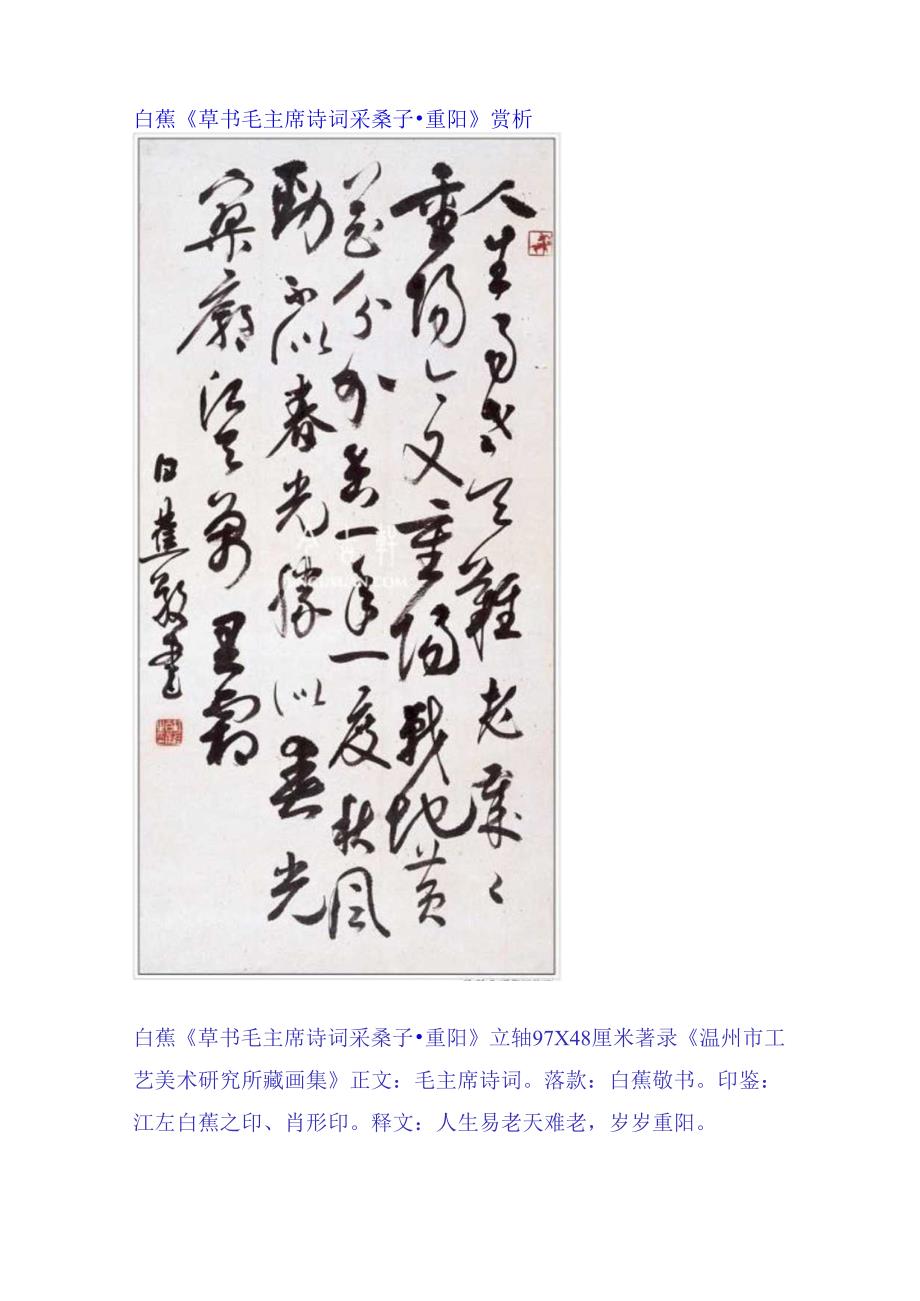 白蕉《草书毛主席诗词采桑子•重阳》赏析
人生易老天難老歲〻
重陽今又重陽戰地黃
花分外香一年一度秋風
勁不似春光勝似春光
寥廓江天萬里霜
白蕉敬書
白蕉《草书毛主席诗词采桑子•重阳》立轴97X48厘米著录《温州市工
艺美术研究所藏画集》正文：毛主席诗词。落款：白蕉敬书。印鉴：
江左白蕉之印、肖形印。释文：人生易老天难老，岁岁重阳。